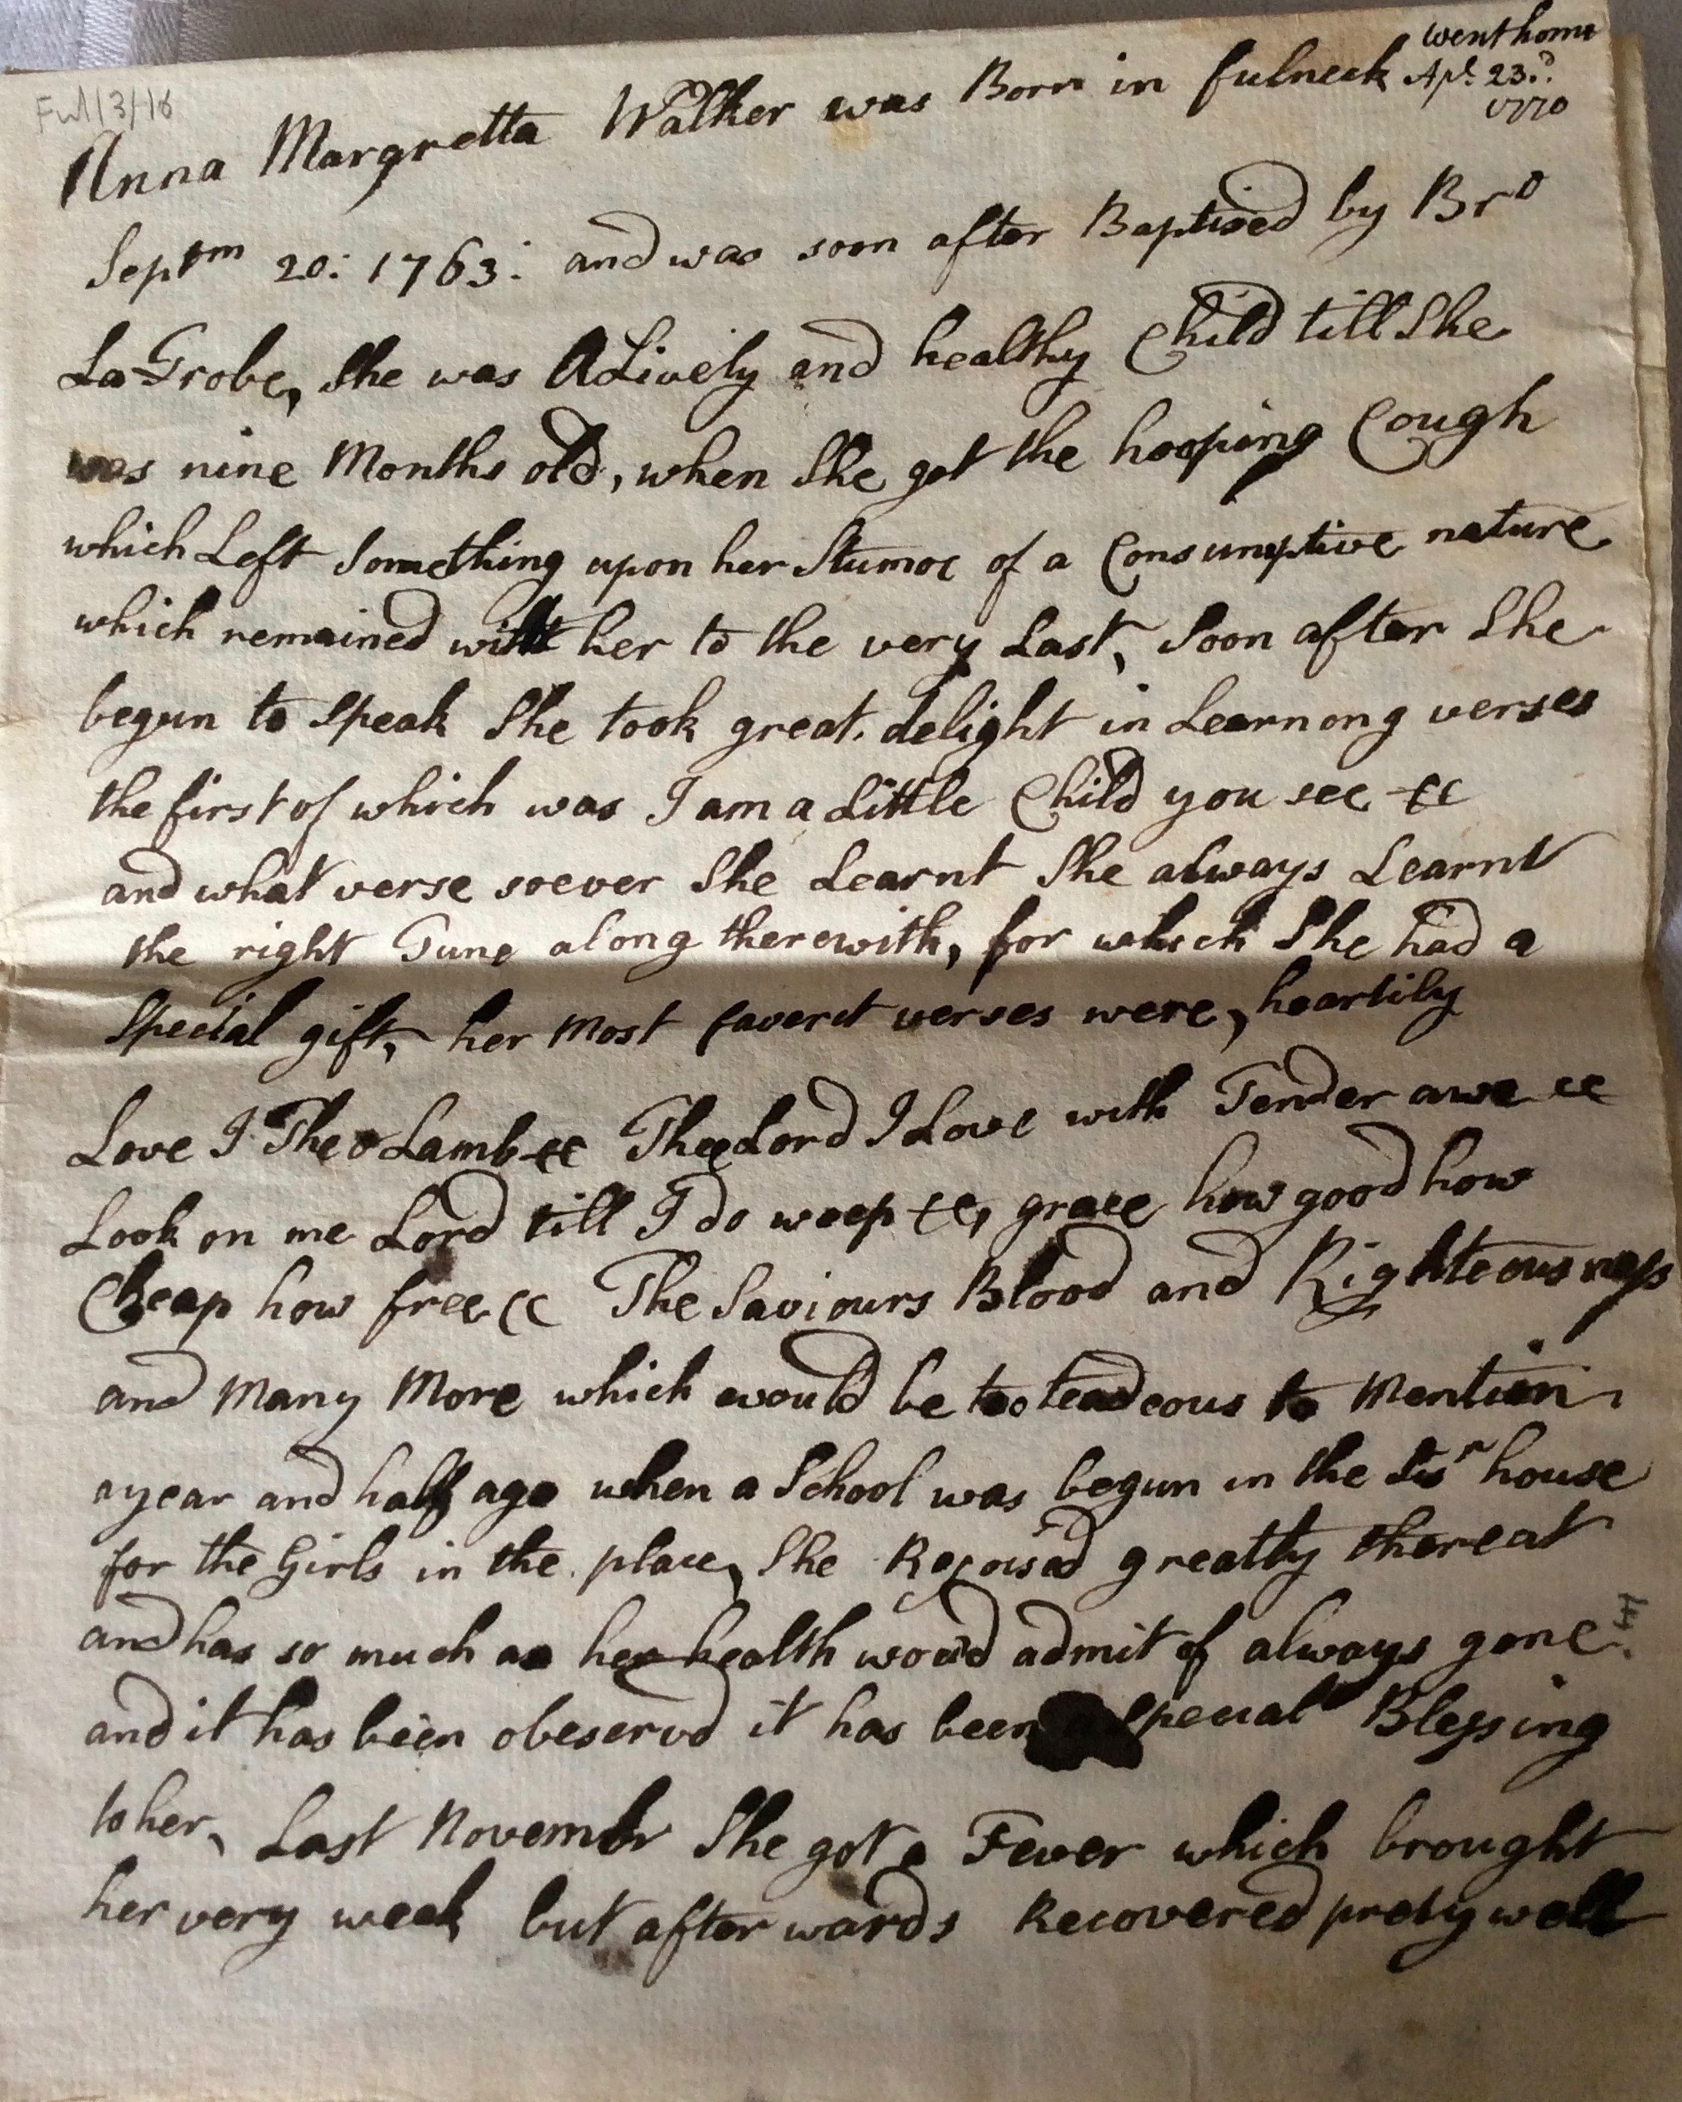 went home
Apl. 23d.
1770
Anna Margretta Walker was Born in fulneck
Septm 20: 1763: and was soon after Baptised by Bro
LaTrobe, She was A Lively and healthy Child till She
was nine Months old, when She got the hooping Cough
which Left Something upon her Stumoc of a Consumptive nature
which remained with her to the very Last, Soon after She
begun to Speak She took great delight in Learnong verses
the first of which was I am a Little Child you see &c
and what verse soever She Learnt She always Learnt
the right Tune along therewith, for which She had a
Special gift, her Most faverit verses were, heartily
Love I The o Lamb &c Thee Lord I Love with Tender awe &c
Look on me Lord till I do weep &c, grace how good how
Cheap how free &c The Saviours Blood and Righteousness
and Many More which would be too teadeous to Mention,
a year and half ago when a School was begun in the Sisr house
for the Girls in the place, She Rejoised greatly thereat
and has so much as her health wou'd admit of always gone
and it has been obeservd it has been a Special Blessing
to her, Last Novembr She got a Fever which brought
her very week but after wards Recovered prety well